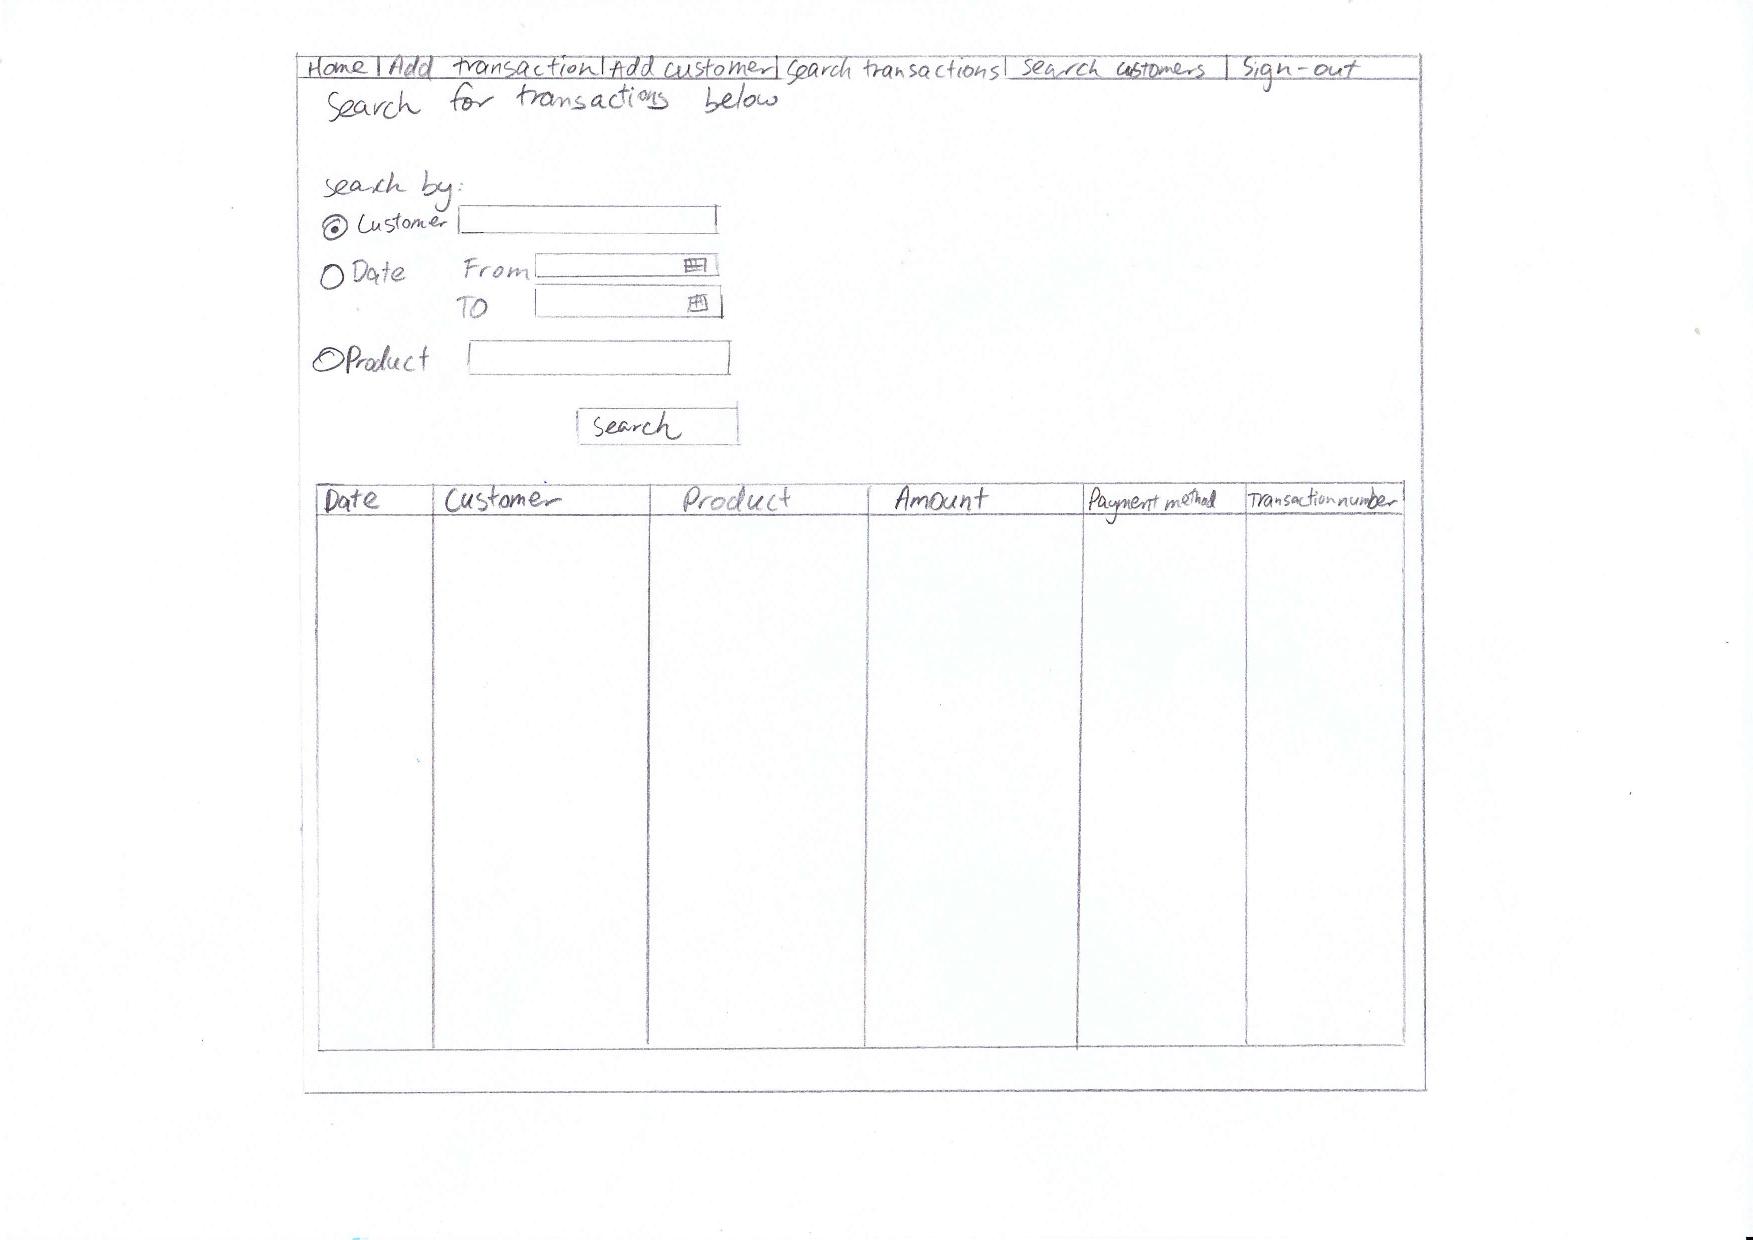 Home | Add transaction | Add customer | Search transactions | Search customers | Sign-out
Search for transactions below
Search by:
Customer
Date From
TO
Product
Search
Date Customer Product Amount Payment method Transaction number